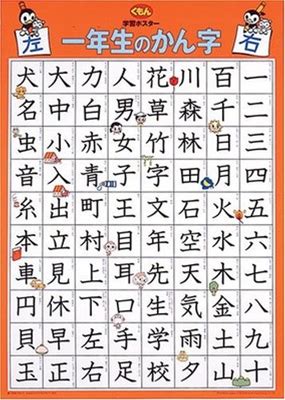 くもん
学習ポスター
左
一年生のかん字
右
一二三四五六七八九十
百千日月火水木金土山
川森林田石空天気雨夕
花草竹字文年先生学校
人男女子王目耳口手足
力白赤青町村上下左右
大中小入出立見休早正
犬名虫音糸本車円貝玉